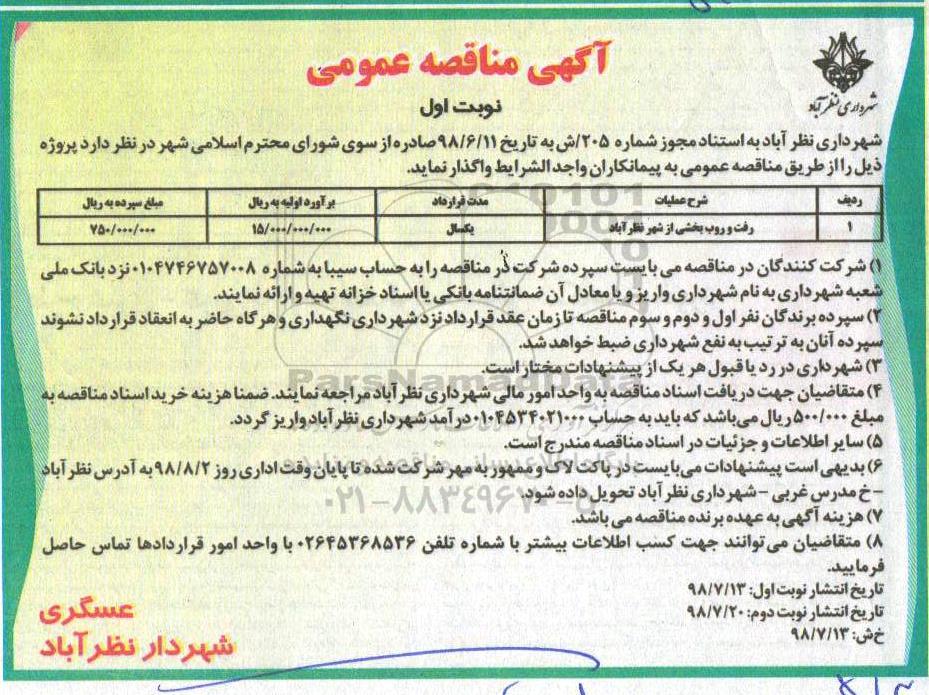 شهرداری نظرآباد
آگهی مناقصه عمومی
نوبت اول
شهرداری نظر آباد به استناد مجوز شماره ۲۰۵/ش به تاریخ ۹۸/۶/۱۱ صادره از سوی شورای محترم اسلامی شهر در نظر دارد پروژه
ذیل را از طریق مناقصه عمومی به پیمانکاران واجد الشرایط واگذار نماید.
ردیف شرح عملیات مدت قرارداد برآورد اولیه به ریال مبلغ سپرده به ریال
۱ رفت و روب بخشی از شهر نظرآباد یکسال ۱۵/۰۰۰/۰۰۰/۰۰۰ ۷۵۰/۰۰۰/۰۰۰
۱) شرکت کنندگان در مناقصه می بایست سپرده شرکت در مناقصه را به حساب سیبا به شماره ۰۱۰۴۷۴۶۷۵۷۰۰۸ نزد بانک ملی
شعبه شهرداری به نام شهرداری واریز و یا معادل آن ضمانتنامه بانکی یا اسناد خزانه تهیه و ارائه نمایند.
۲) سپرده برندگان نفر اول و دوم و سوم مناقصه تا زمان عقد قرارداد نزد شهرداری نگهداری و هرگاه حاضر به انعقاد قرارداد نشوند
سپرده آنان به ترتیب به نفع شهرداری ضبط خواهد شد.
۳) شهرداری در رد یا قبول هر یک از پیشنهادات مختار است.
۴) متقاضیان جهت دریافت اسناد مناقصه به واحد امور مالی شهرداری نظر آباد مراجعه نمایند. ضمنا هزینه خرید اسناد مناقصه به
مبلغ ۵۰۰/۰۰۰ ریال می‌باشد که باید به حساب ۰۱۰۴۵۳۴۰۲۱۰۰۰ درآمد شهرداری نظر آباد واریز گردد.
۵) سایر اطلاعات و جزئیات در اسناد مناقصه مندرج است.
۶) بدیهی است پیشنهادات می‌بایست در پاکت لاک و ممهور به مهر شرکت شده تا پایان وقت اداری روز ۹۸/۸/۲ به آدرس نظر آباد
– خ مدرس غربی – شهرداری نظر آباد تحویل داده شود.
۷) هزینه آگهی به عهده برنده مناقصه می باشد.
۸) متقاضیان می توانند جهت کسب اطلاعات بیشتر با شماره تلفن ۰۲۶۴۵۳۶۸۵۳۶ با واحد امور قراردادها تماس حاصل
فرمایید.
تاریخ انتشار نوبت اول: ۹۸/۷/۱۳
تاریخ انتشار نوبت دوم: ۹۸/۷/۲۰
خ‌ش: ۹۸/۷/۱۳
عسگری
شهردار نظرآباد
ParsNamadData
۰۲۱-۸۸۳۴۹۶۷۰-۵